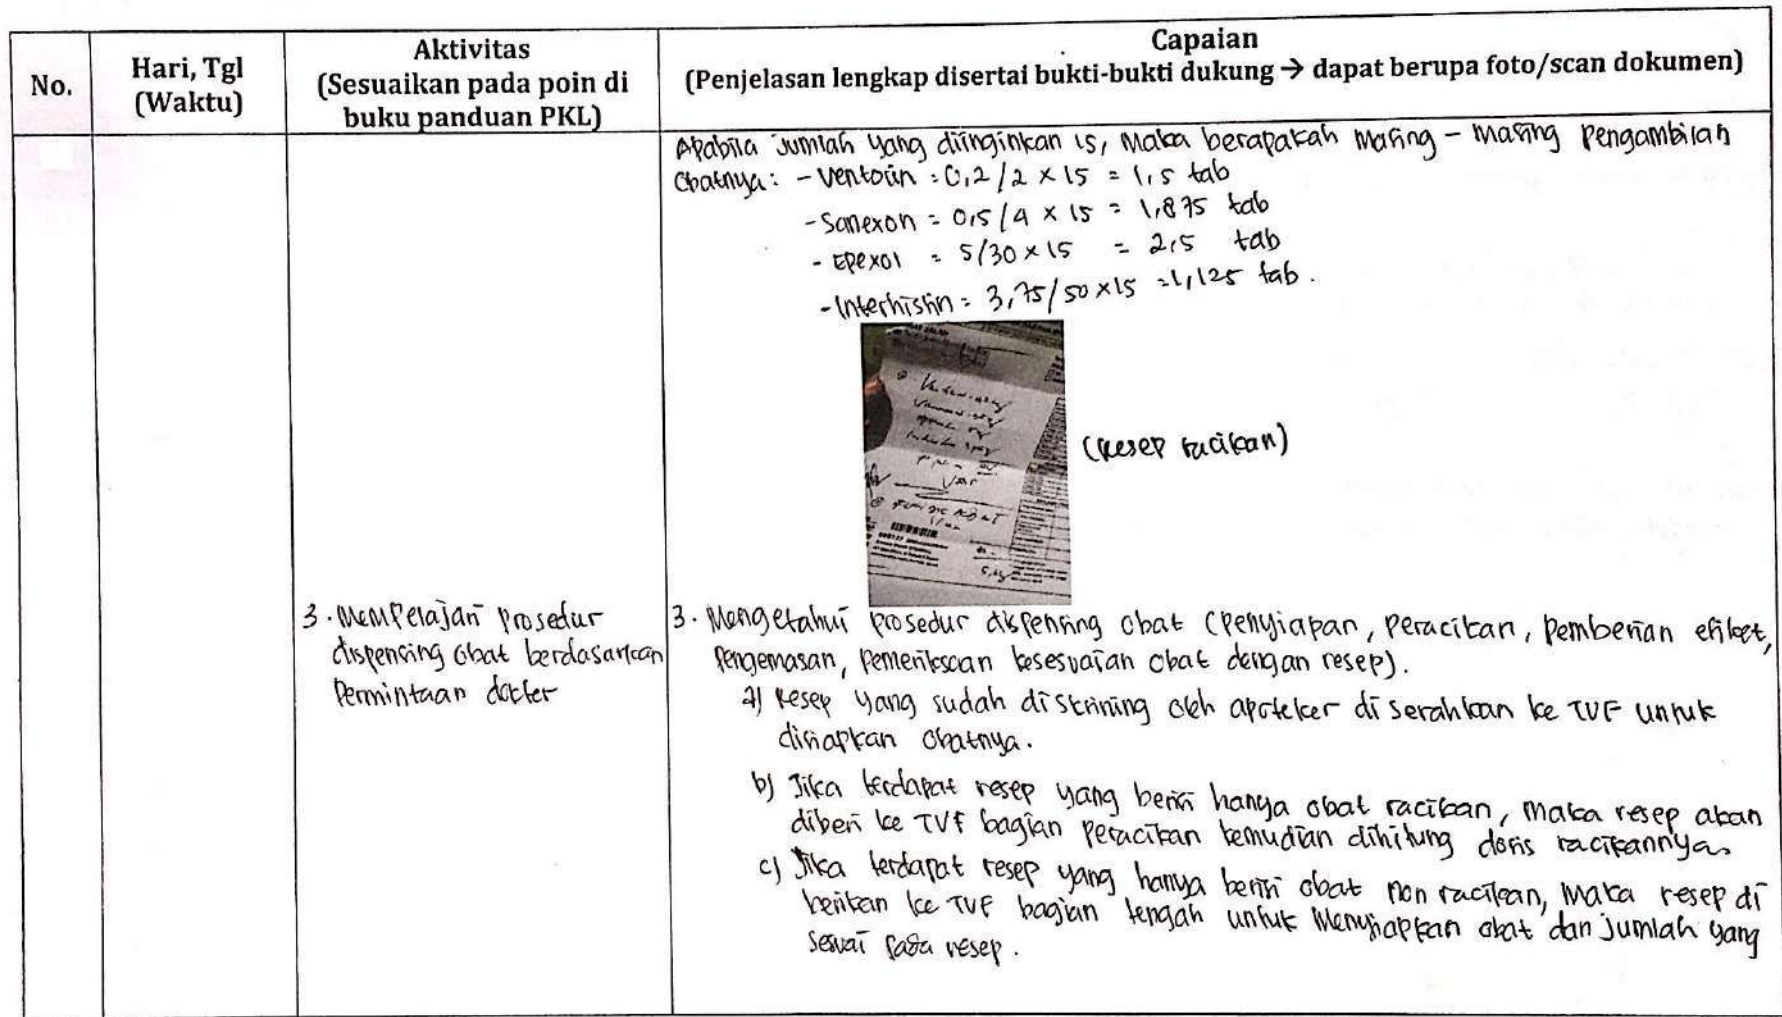 No.
Hari, Tgl
(Waktu)
Aktivitas
(Sesuaikan pada poin di
buku panduan PKL)
Capaian
(Penjelasan lengkap disertai bukti-bukti dukung → dapat berupa foto/scan dokumen)
Apabila jumlah yang diinginkan 15, maka berapakah masing - masing pengambilan
Obatnya: - Ventolin = 0,2 / 2 x 15 = 1,5 tab
- Sanexon = 0,5 / 4 x 15 = 1,875 tab
- Epexol = 5/30 x 15 = 2,5 tab
- Interhistin = 3,75/50 x 15 = 1,125 tab.
(Resep racikan)
3. Mempelajari prosedur
dispensing obat berdasarkan
Permintaan dokter
3. Mengetahui prosedur dispensing obat (penyiapan, peracikan, pemberian etiket,
Pengemasan, pemeriksaan kesesuaian obat dengan resep).
a) Resep yang sudah diskrining oleh apoteker di serahkan ke TVF untuk
disiapkan obatnya.
b) Jika terdapat resep yang berisi hanya obat racikan, maka resep akan
diberi ke TVF bagian peracikan kemudian dihitung dosis racikannya.
c) Jika terdapat resep yang hanya berisi obat non racikan, maka resep di
berikan ke TVF bagian tengah untuk menyiapkan obat dan jumlah yang
sesuai pada resep.